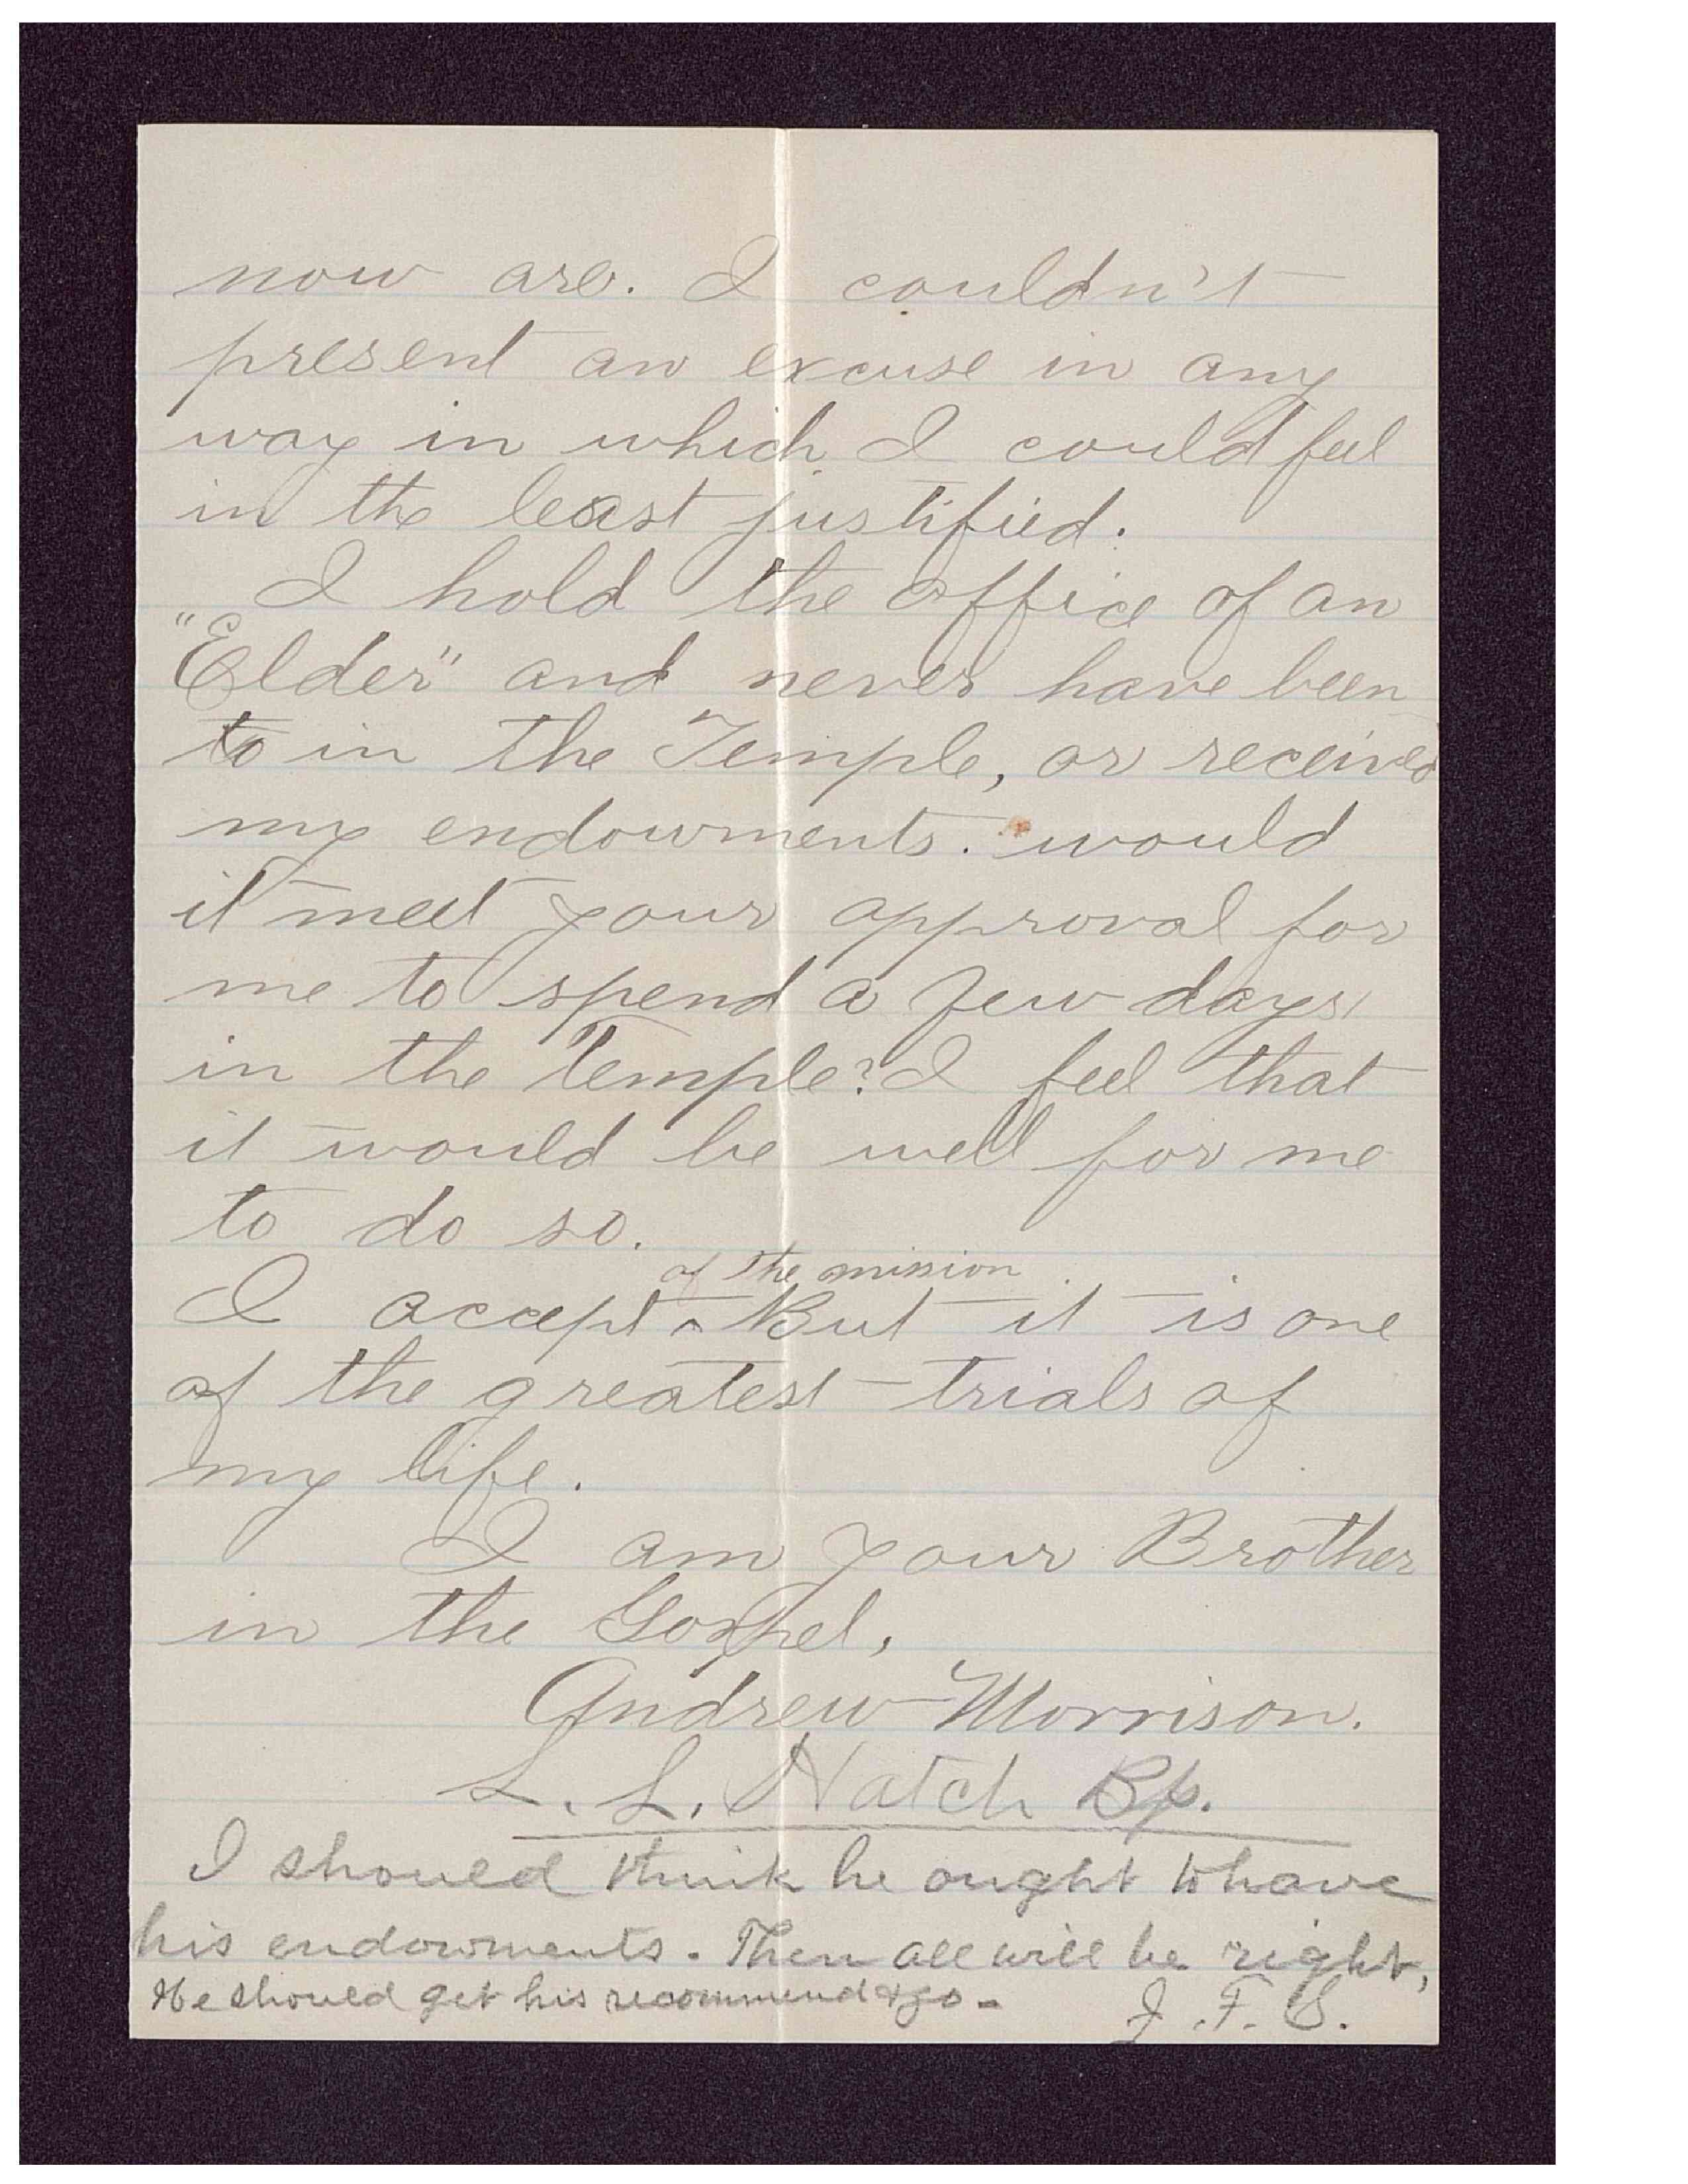 now are. I couldn't
present an excuse in any
way in which I could feel
in the least justified.
I hold the office of an
"Elder" and never have been
to in the Temple, or received
my endowments. would
it meet your approval for
me to spend a few days
in the Temple? I feel that
it would be well for me
to do so.
of the mission
I accept ^ But it is one
of the greatest trials of
my life.
I am your Brother
in the Gospel,
Andrew Morrison.
L. L. Hatch Bp.
I should think he ought to have
his endowments. Then all will be right,
He should get his recommend & go -
J. F. S.